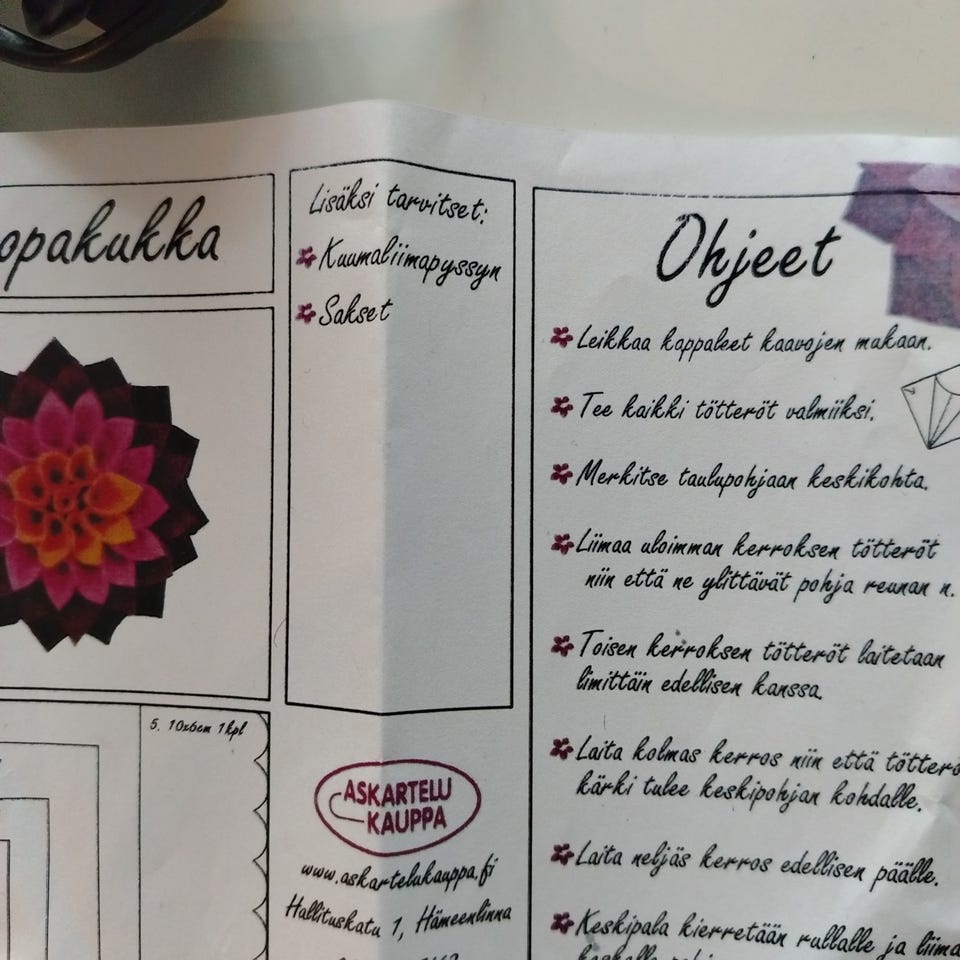 opakukka
5. 10x6cm 1kpl
Lisäksi tarvitset:
Kuumaliimapyssyn
Sakset
ASKARTELU
KAUPPA
www.askartelukauppa.fi
Hallituskatu 1, Hämeenlinna
Ohjeet
Leikkaa kappaleet kaavojen mukaan.
Tee kaikki tötteröt valmiiksi.
Merkitse taulupohjaan keskikohta.
Liimaa uloimman kerroksen tötteröt
niin että ne ylittävät pohja reunan n.
Toisen kerroksen tötteröt laitetaan
limittäin edellisen kanssa.
Laita kolmas kerros niin että tötterö
kärki tulee keskipohjan kohdalle.
Laita neljäs kerros edellisen päälle.
Keskipala kierretään rullalle ja liima